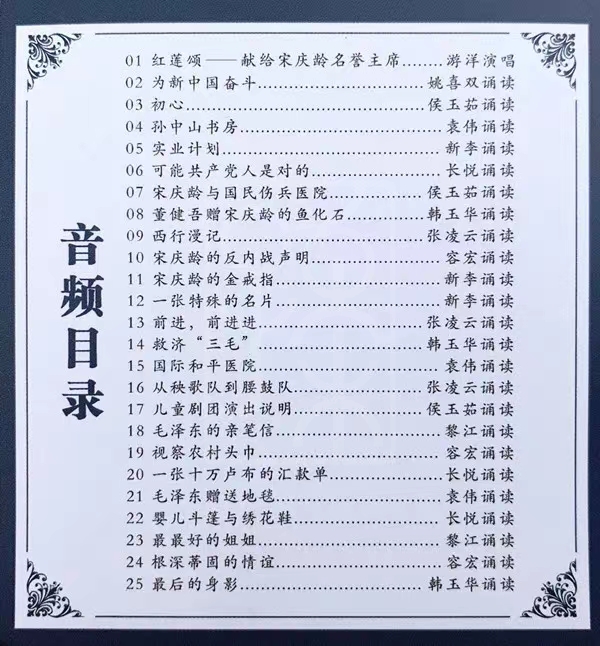 音频目录
01 红莲颂——献给宋庆龄名誉主席........游洋演唱
02 为新中国奋斗........................姚喜双诵读
03 初心........................侯玉茹诵读
04 孙中山书房........................袁伟诵读
05 实业计划........................新李诵读
06 可能共产党人是对的........................长悦诵读
07 宋庆龄与国民伤兵医院........................侯玉茹诵读
08 董健吾赠宋庆龄的鱼化石........................韩玉华诵读
09 西行漫记........................张凌云诵读
10 宋庆龄的反内战声明........................容宏诵读
11 宋庆龄的金戒指........................新李诵读
12 一张特殊的名片........................新李诵读
13 前进，前进进........................张凌云诵读
14 救济“三毛”........................韩玉华诵读
15 国际和平医院........................袁伟诵读
16 从秧歌队到腰鼓队........................张凌云诵读
17 儿童剧团演出说明........................侯玉茹诵读
18 毛泽东的亲笔信........................黎江诵读
19 视察农村头巾........................容宏诵读
20 一张十万卢布的汇款单........................长悦诵读
21 毛泽东赠送地毯........................袁伟诵读
22 婴儿斗篷与绣花鞋........................长悦诵读
23 最最好的姐姐........................黎江诵读
24 根深蒂固的情谊........................容宏诵读
25 最后的身影........................韩玉华诵读